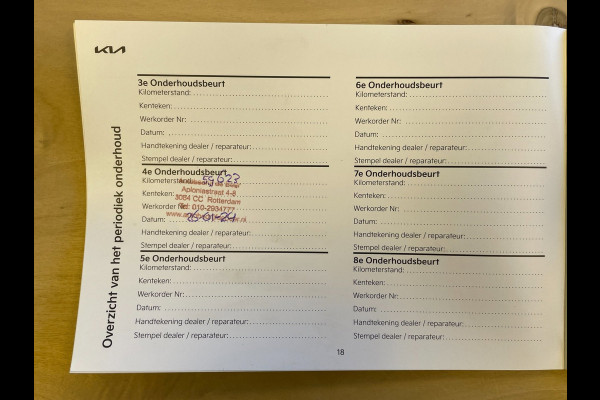 KIA
Overzicht van het periodiek onderhoud
3e Onderhoudsbeurt
Kilometerstand:
Kenteken:
Werkorder Nr:
Datum:
Handtekening dealer / reparateur:
Stempel dealer / reparateur:
4e Onderhoudsbeurt
Kilometerstand: 55623
Kenteken:
Werkorder Nr:
Datum: 26-01-24
Handtekening dealer / reparateur:
Stempel dealer / reparateur:
Aploniastraat 4-8
3084 CC Rotterdam
Tel: 010-2934777
5e Onderhoudsbeurt
Kilometerstand:
Kenteken:
Werkorder Nr:
Datum:
Handtekening dealer / reparateur:
Stempel dealer / reparateur:
6e Onderhoudsbeurt
Kilometerstand:
Kenteken:
Werkorder Nr:
Datum:
Handtekening dealer / reparateur:
Stempel dealer / reparateur:
7e Onderhoudsbeurt
Kilometerstand:
Kenteken:
Werkorder Nr:
Datum:
Handtekening dealer / reparateur:
Stempel dealer / reparateur:
8e Onderhoudsbeurt
Kilometerstand:
Kenteken:
Werkorder Nr:
Datum:
Handtekening dealer / reparateur:
Stempel dealer / reparateur:
18